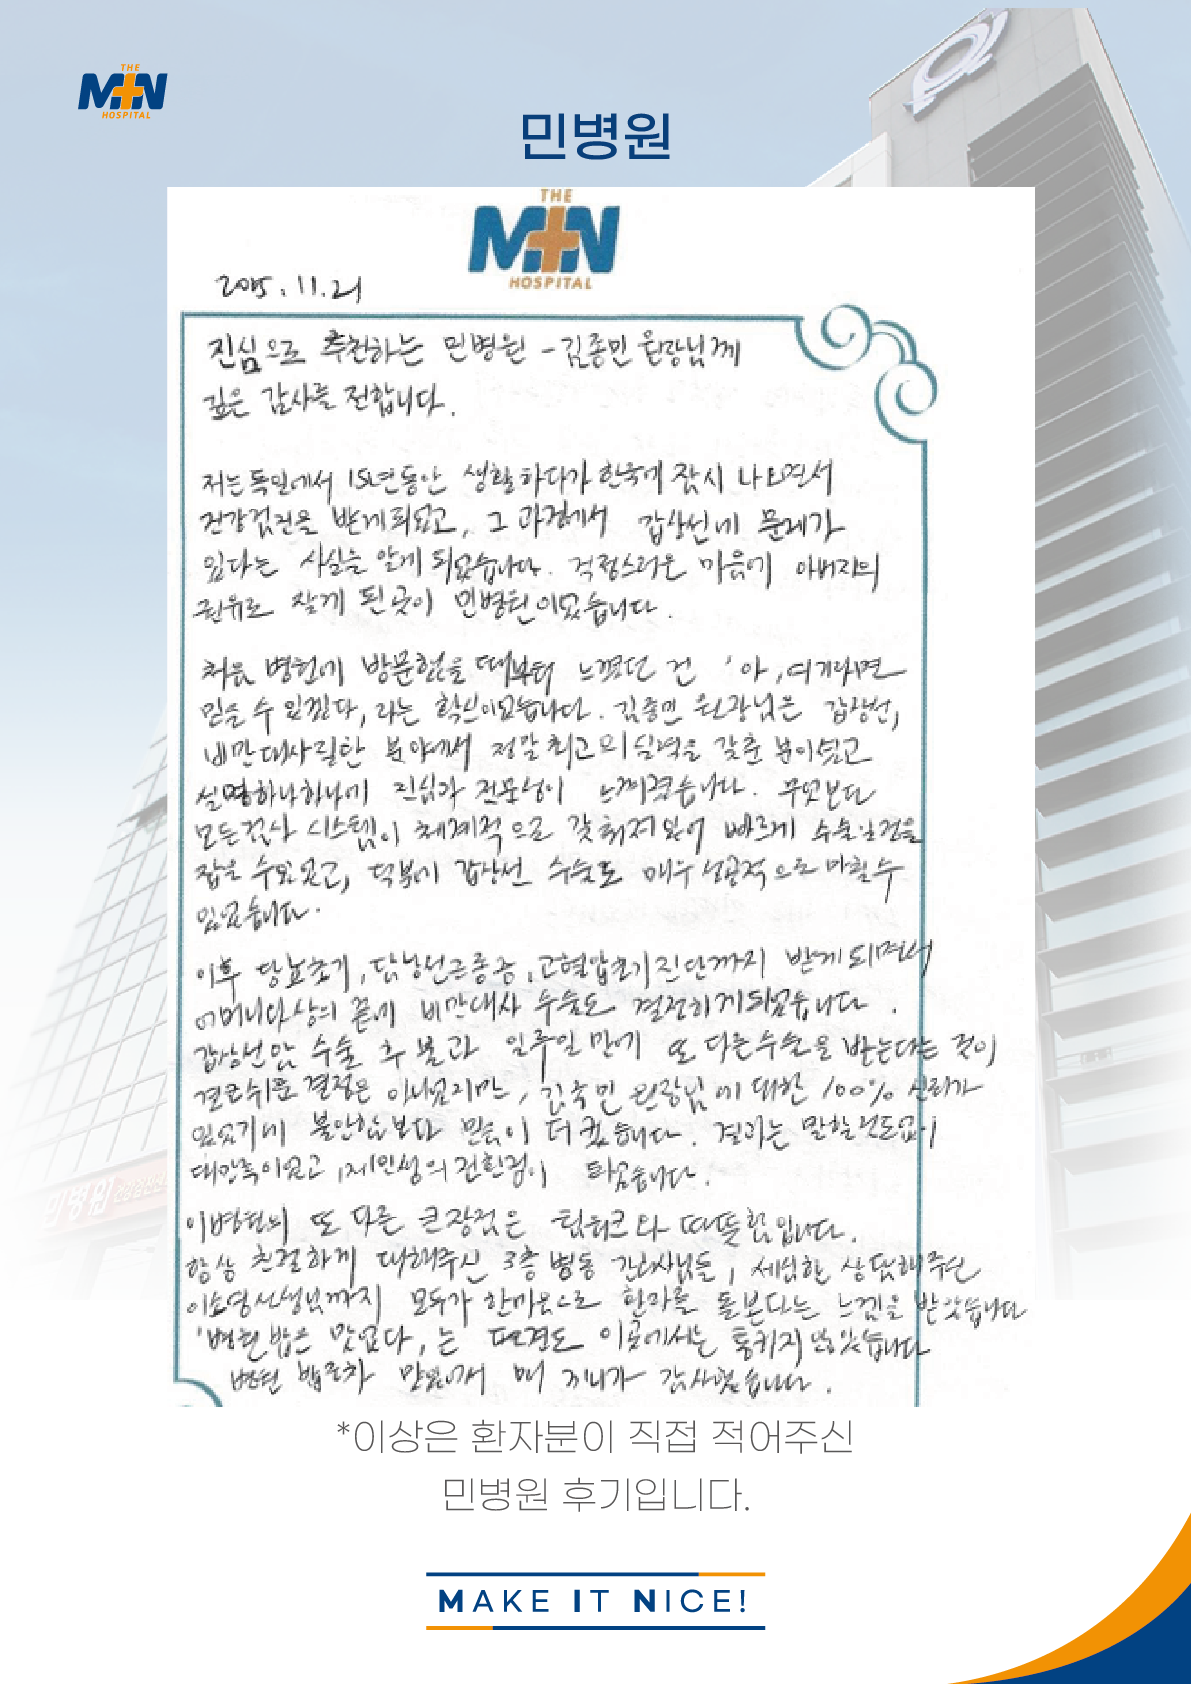 THE
MIN
HOSPITAL
민병원
THE
MIN
HOSPITAL
2025. 11. 21
진심으로 추천하는 민병원 - 김종민 원장님께
깊은 감사를 전합니다.
저는 독일에서 15년동안 생활하다가 한국에 잠시 나오면서
건강검진을 받게되었고, 그 과정에서 갑상선에 문제가
있다는 사실을 알게 되었습니다. 걱정스러운 마음에 아버지의
권유로 찾게 된 곳이 민병원이었습니다.
처음 병원에 방문했을 때부터 느꼈던 건 '아, 여기라면
믿을 수 있겠다, 라는 확신이었습니다. 김종민 원장님은 갑상선,
비만대사질환 분야에서 정말 최고의 실력을 갖춘 분이셨고
설명하나하나에 진심과 전문성이 느껴졌습니다. 무엇보다
모든검사 시스템이 체계적으로 갖춰져있어 빠르게 수술일정을
잡을 수 있었고, 덕분에 갑상선 수술도 매우 성공적으로 마칠수
있었습니다.
이후 당뇨초기, 고혈압초기진단까지 받게되면서
비만대사 수술도 결정하게되었습니다.
갑상선암 수술 후 불과 일주일 만에 또 다른수술을 받는다는 것이
결코쉬운 결정은 아니었지만, 김종민 원장님에 대한 100% 신뢰가
있었기에 불안함보다 믿음이 더 컸습니다. 결과는 말할것도없이
대만족이었고, 제인생의전환점이 되었습니다.
이병원의 또 다른 큰장점은 팀워크와 따뜻함입니다.
항상 친절하게 대해주신 3층 병동 간호사님들, 세심한 상담해주신
이소영선생님까지 모두가 한마음으로 환자를 돌본다는 느낌을 받았습니다
'병원 밥은 맛없다, 는 편견도 이곳에서는 통하지 않았습니다
병원 밥조차 맛있어서 매 끼니가 감사했습니다.
*이상은 환자분이 직접 적어주신
민병원 후기입니다.
MAKE IT NICE!